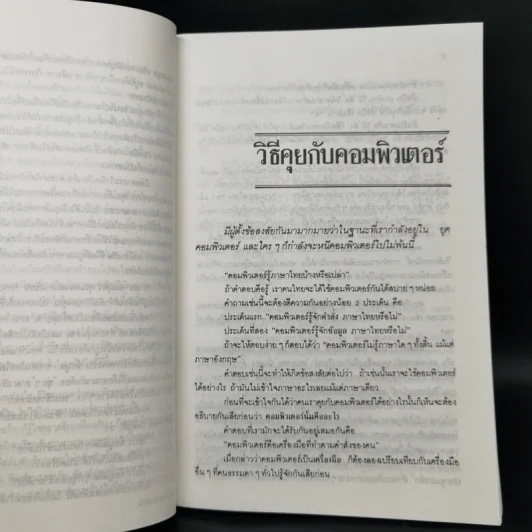 วิธีคุยกับคอมพิวเตอร์
มีผู้ตั้งข้อสงสัยกันมามากมายว่าในฐานะที่เรากำลังอยู่ใน ยุค
คอมพิวเตอร์ และใคร ๆ ก็กำลังจะหนีคอมพิวเตอร์ไปไม่พ้นนี้
"คอมพิวเตอร์รู้ภาษาไทยบ้างหรือเปล่า"
ถ้าคำตอบคือรู้ เราคนไทยจะได้ใช้คอมพิวเตอร์กันได้สบาย ๆ หน่อย
คำถามเช่นนี้จะต้องตีความกันอย่างน้อย 2 ประเด็น คือ
ประเด็นแรก "คอมพิวเตอร์รู้จักคำสั่ง ภาษาไทยหรือไม่"
ประเด็นที่สอง "คอมพิวเตอร์รู้จักข้อมูล ภาษาไทยหรือไม่"
ถ้าจะให้ตอบง่าย ๆ ก็ตอบได้ว่า "คอมพิวเตอร์ไม่รู้ภาษาใด ๆ ทั้งสิ้น แม้แต่
ภาษาอังกฤษ"
คำตอบเช่นนี้จะทำให้เกิดข้อสงสัยต่อไปว่า ถ้าเช่นนั้นเราจะใช้คอมพิวเตอร์
ได้อย่างไร ถ้ามันไม่เข้าใจภาษาอะไรเลยแม้แต่ภาษาเดียว
ก่อนที่จะเข้าใจกันได้ว่าคนเราคุยกับคอมพิวเตอร์ได้อย่างไรนั้นก็เห็นจะต้อง
อธิบายกันเสียก่อนว่า คอมพิวเตอร์นั้นคืออะไร
คำตอบที่เรามักจะได้รับกันอยู่เสมอก็คือ
"คอมพิวเตอร์คือเครื่องมือที่ทำตามคำสั่งของคน"
เมื่อกล่าวว่าคอมพิวเตอร์เป็นเครื่องมือ ก็ต้องลองเปรียบเทียบกับเครื่องมือ
อื่น ๆ ที่คนธรรมดา ๆ ทั่วไปรู้จักกันเสียก่อน